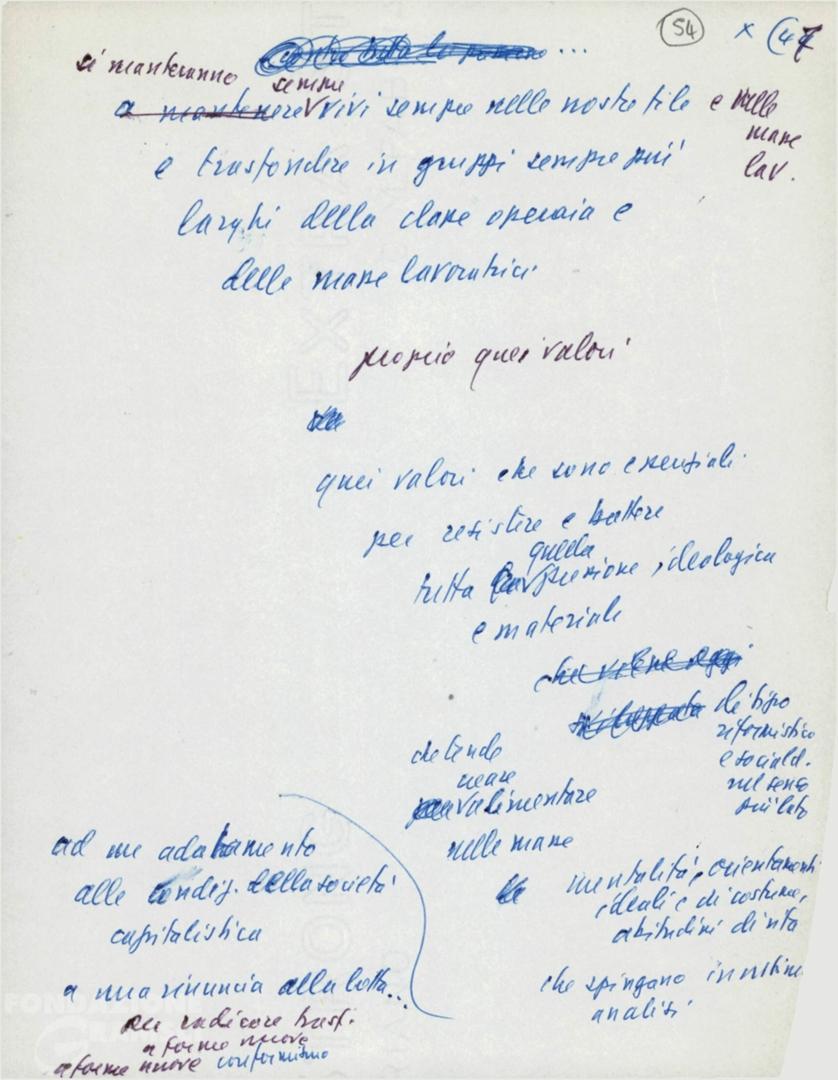 54 x (47
...
si manterranno sempre
a mantenere vivi sempre nelle nostre file e nelle
masse
lav.
e trasfondere in gruppi sempre più
larghi della classe operaia e
delle masse lavoratrici
proprio quei valori
quei valori che sono essenziali
per resistere e battere
quella
tutta pressione ideologica
e materiale
che viene oggi
di tipo
riformistico
e sociald.
nel senso
più lato
che tende
alimentare
nelle masse
mentalità, orientamenti
ideali e di costume,
abitudini di vita
che spingano in ultima
analisi
ad un adattamento
alle condiz. della società
capitalistica
a una rinuncia alla lotta...
per radicare trasf.
a forme nuove
a forme nuove conformismo
FONDAZIONE
GRAMSCI